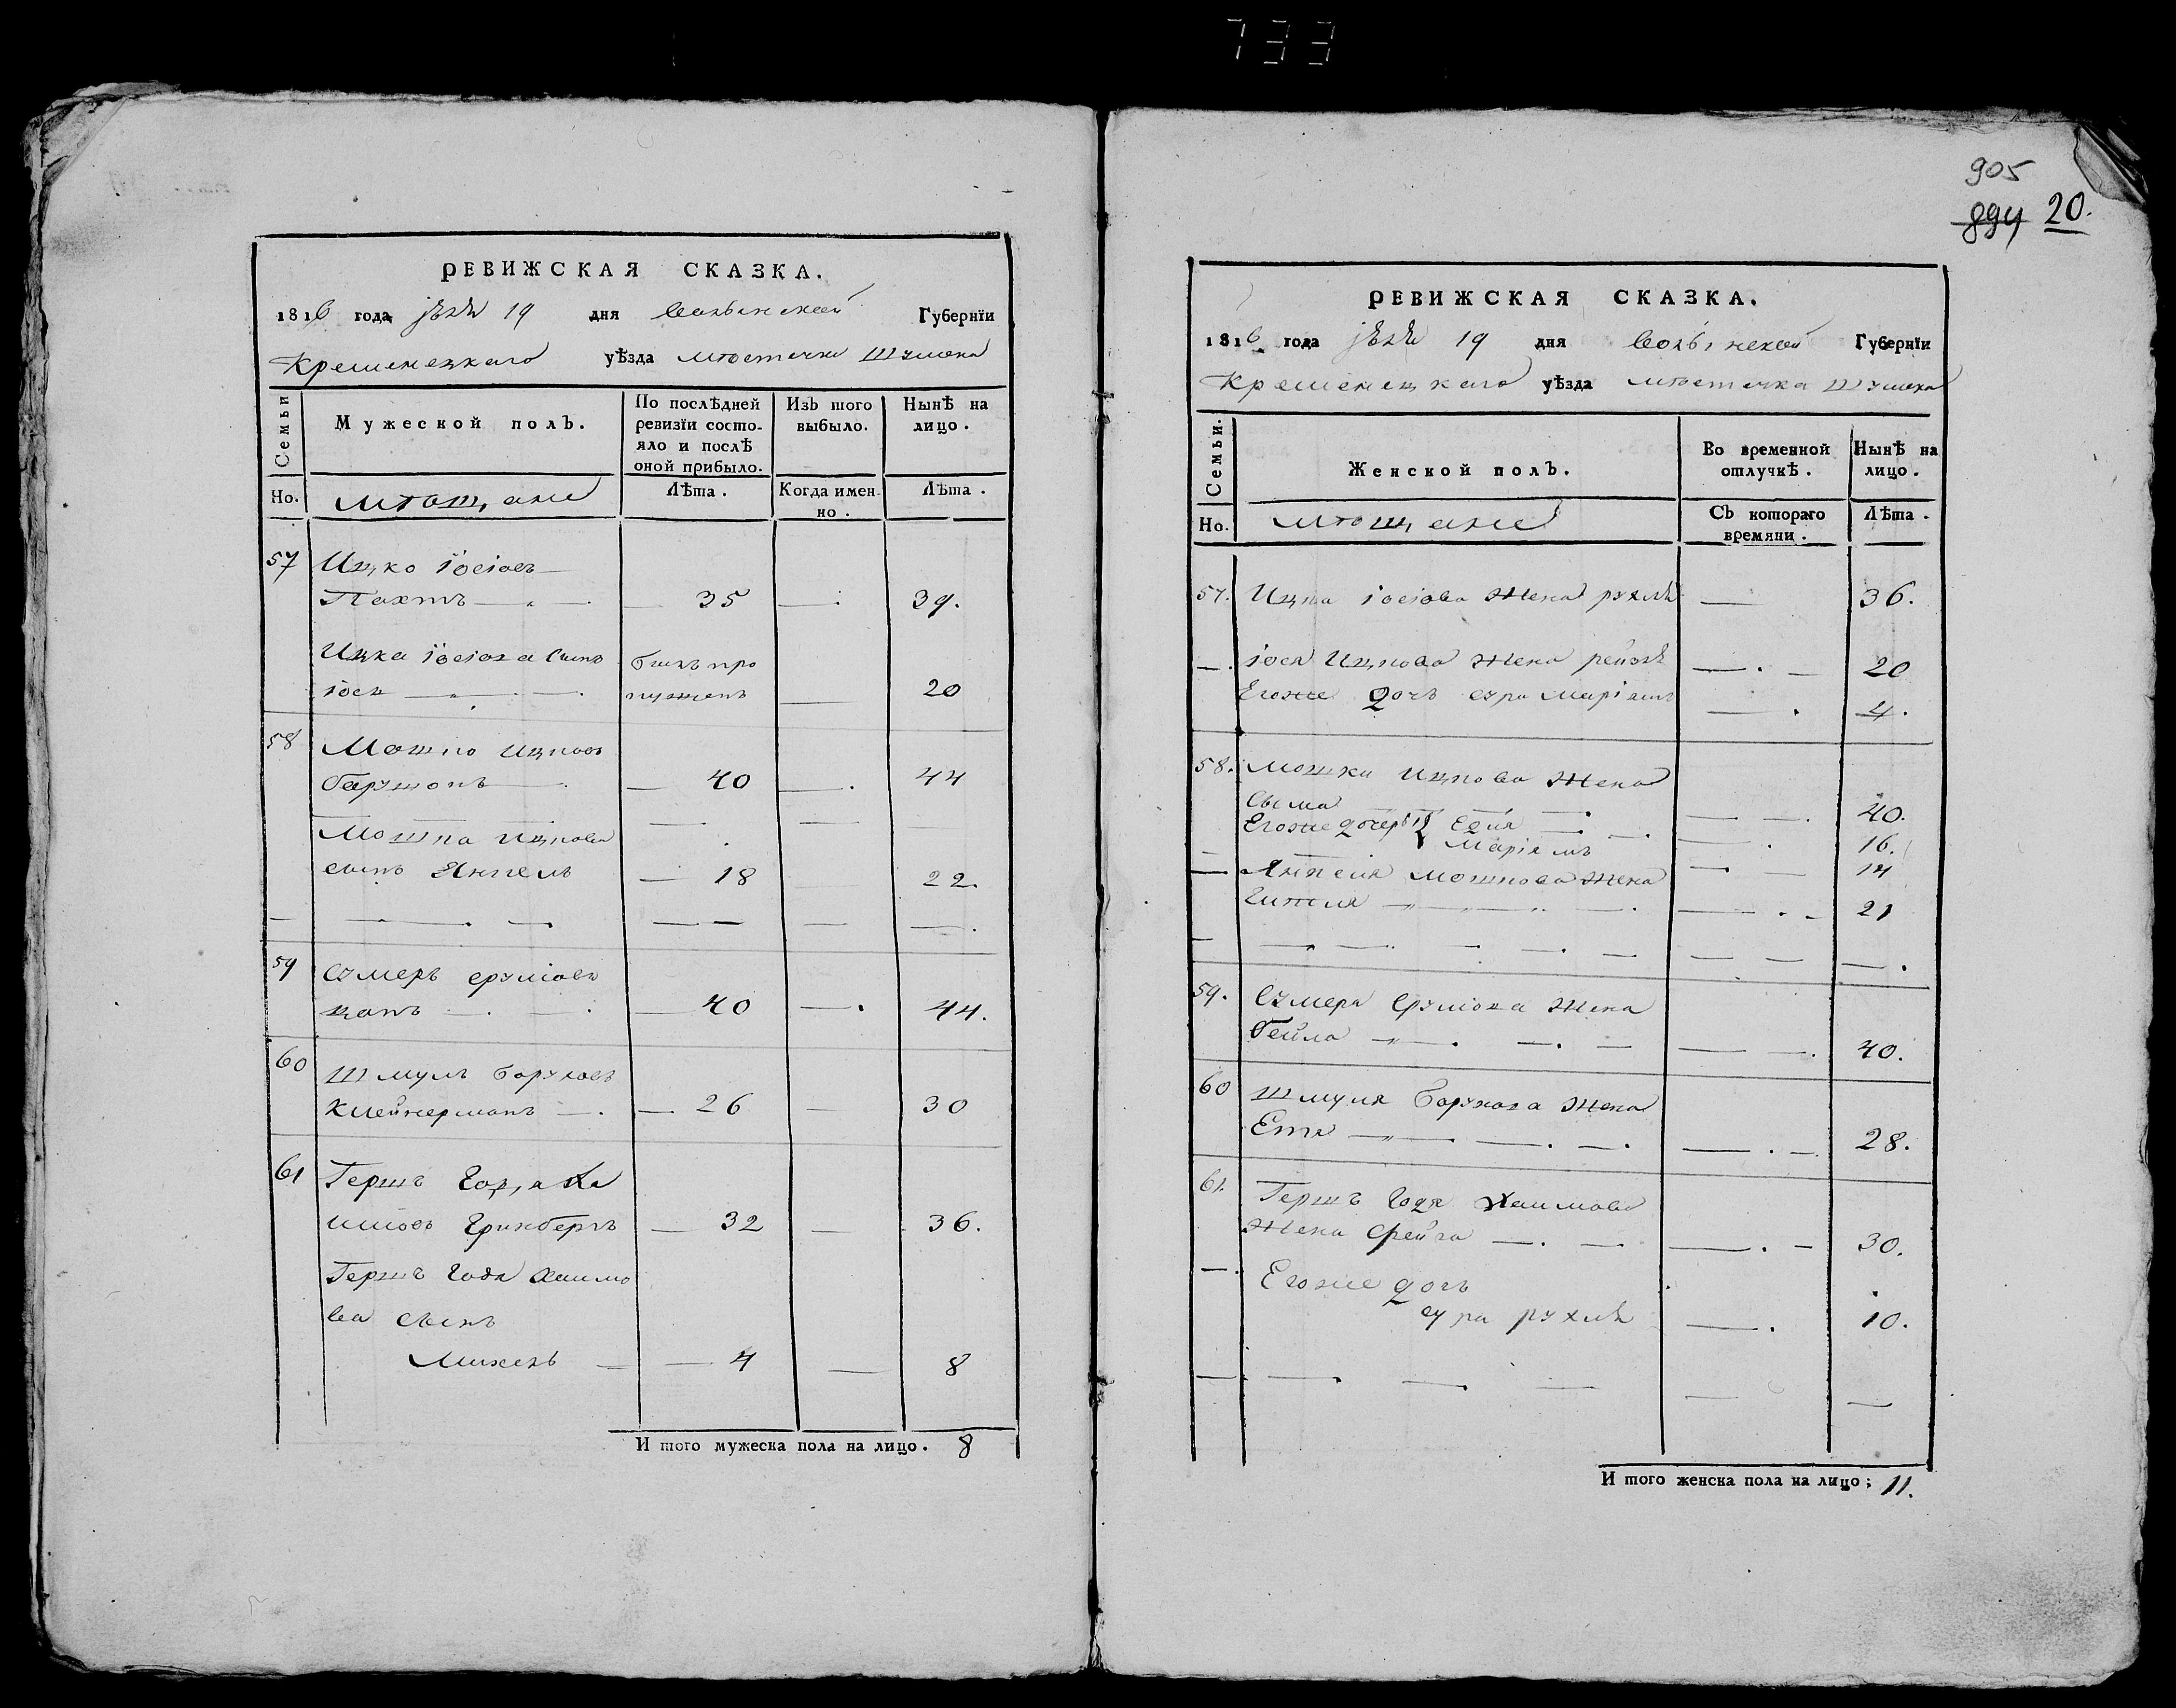 733
905
894 20.
РЕВИЖСКАЯ СКАЗКА.
1816 года іюля 19 дня Волынской Губернїи
Кременецкаго уѣзда мѣстечка Шумска
Семьи
Мужеской полъ.
По послѣдней ревизїи состо-
яло и послѣ
оной прибыло.
Изъ того выбыло.
Нынѣ на лицо.
Но. мѣщане Лѣта. Когда имен-
но. Лѣта.
57 Ицко іосіовъ
Пахтъ 35 39.
Ицка іосіова сынъ былъ про
іосъ пущенъ 20
58 Мошко Ицковъ
барштопъ 40 44
Мошка Ицкова
сынъ Янкель 18 22.
59 Сумеръ сруліовъ
кацъ 40 44.
60 Шмуль боруховъ
Клейнерманъ 26 30
61 Гершъ Годя Ха
имовъ Гринбергъ 32 36.
Гершъ Годя Хаимо
ва сынъ
Михель 4 8
И того мужеска пола на лицо. 8
РЕВИЖСКАЯ СКАЗКА.
1816 года іюля 19 дня Волынской Губернїи
Кременецкаго уѣзда мѣстечка Шумска
Семьи.
Женской полъ.
Во временной отлучкѣ.
Нынѣ на лицо.
Но. мѣщане Съ котораго
времяни. Лѣта.
57. Ицка іосіова жена рухля 36.
іося Ицкова жена рейзя 20
Егоже дочь сура маріамъ 4.
58. Мошка Ицкова жена
сыма 40.
Егоже дочери Едля 16.
Маріямъ 14
Янкеля Мошкова жена
Гитля 21
59. Сумера Сруліова жена
бейла 40.
60 Шмуля борухова жена
Етя 28.
61. Гершъ Годя Хаимова
жена фейга 30.
Егоже дочь
сура рухля 10.
И того женска пола на лицо; 11.